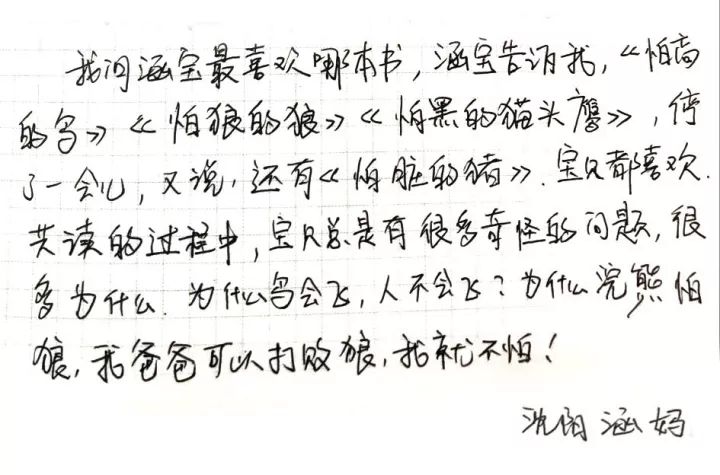 我问涵宝最喜欢哪本书，涵宝告诉我，《怕高
的鸟》《怕狼的狼》《怕黑的猫头鹰》，停
了一会儿，又说，还有《怕脏的猪》。宝贝都喜欢.
共读的过程中，宝贝总是有很多奇怪的问题，很
多为什么. 为什么鸟会飞，人不会飞？为什么浣熊怕
狼，我爸爸可以打败狼，我就不怕！
沈阳 涵妈